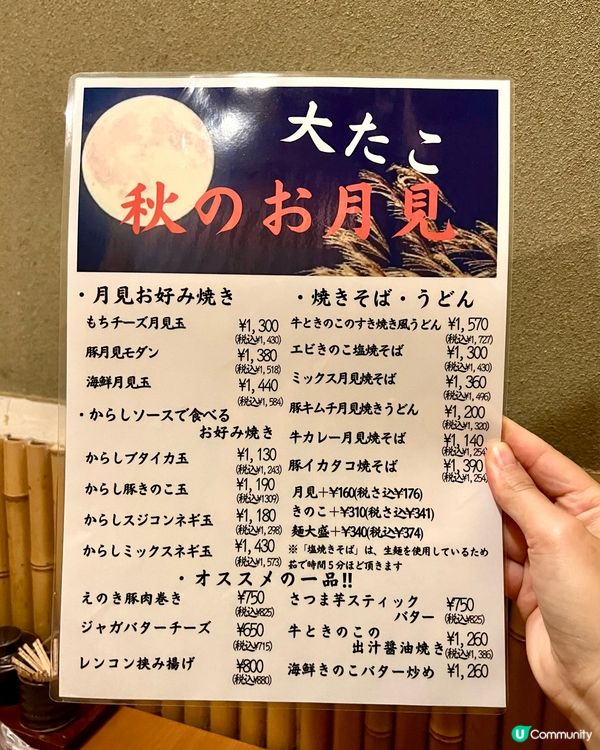 大たこ
秋のお月見
・月見お好み焼き
もちチーズ月見玉 ¥1,300
(税込¥1,430)
豚月見モダン ¥1,380
(税込¥1,518)
海鮮月見玉 ¥1,440
(税込¥1,584)
・からしソースで食べる
お好み焼き
からしブタイカ玉 ¥1,130
(税込¥1,243)
からし豚きのこ玉 ¥1,190
(税込¥1309)
からしスジコンネギ玉 ¥1,180
(税込¥1,298)
からしミックスネギ玉 ¥1,430
(税込¥1,573)
・焼きそば・うどん
牛ときのこのすき焼き風うどん ¥1,570
(税込¥1,727)
エビきのこ塩焼そば ¥1,300
(税込¥1,430)
ミックス月見焼そば ¥1,360
(税込¥1,496)
豚キムチ月見焼きうどん ¥1,200
(税込¥1,320)
牛カレー月見焼そば ¥1,140
(税込¥1,254)
豚イカタコ焼そば ¥1,390
(税込¥1,254)
月見+¥160(税さ込¥176)
きのこ+¥310(税さ込¥341)
麺大盛+¥340(税込¥374)
※「塩焼きそば」は、生麺を使用しているため
茹で時間5分ほど頂きます
・オススメの一品!!
えのき豚肉巻き ¥750
(税込¥825)
ジャガバターチーズ ¥650
(税込¥715)
レンコン挟み揚げ ¥800
(税込¥880)
さつま芋スティック
バター ¥750
(税込¥825)
牛ときのこの
出汁醤油焼き ¥1,260
(税込¥1,386)
海鮮きのこバター炒め ¥1,260
U Community